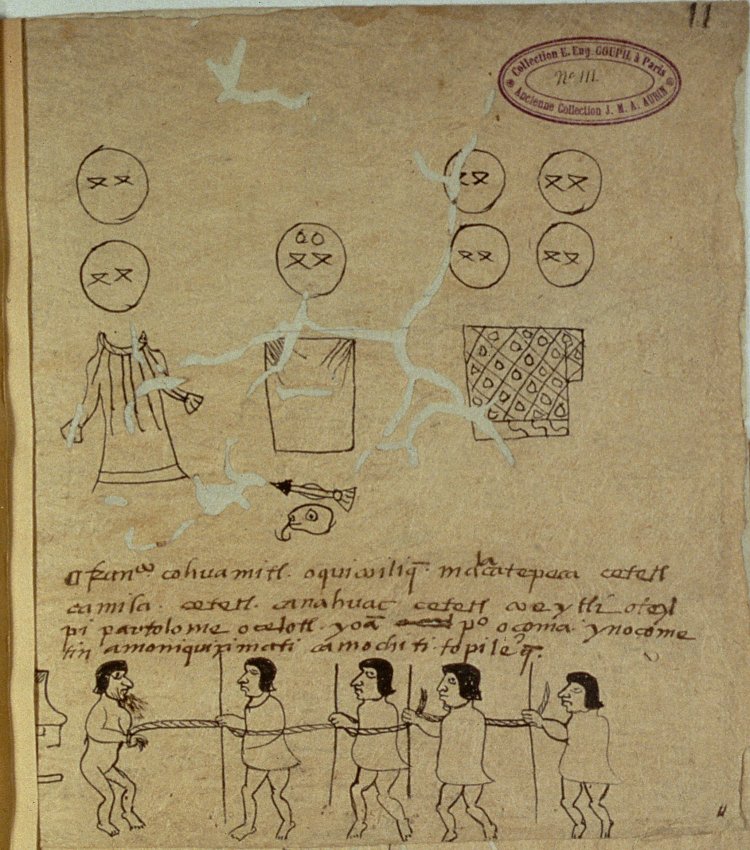 11
Collection E. Eug. GOUPIL à Paris
No III.
Ancienne Collection J. M. A. AUBIN
cohuamitl. oquicuiliq̄. macatepeca cetetl
camisa. cetetl. canahuac cetetl
pi partolome ocelotl. yoā po ocoma. ynocome
tin amoniquiximati camochi ti topileq̄.